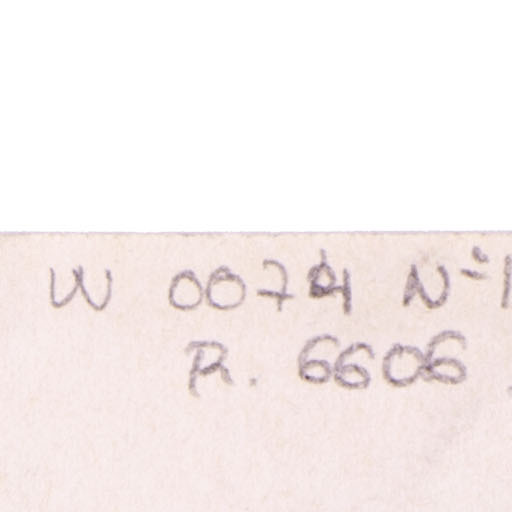 W 0074 Nº1
R. 6606